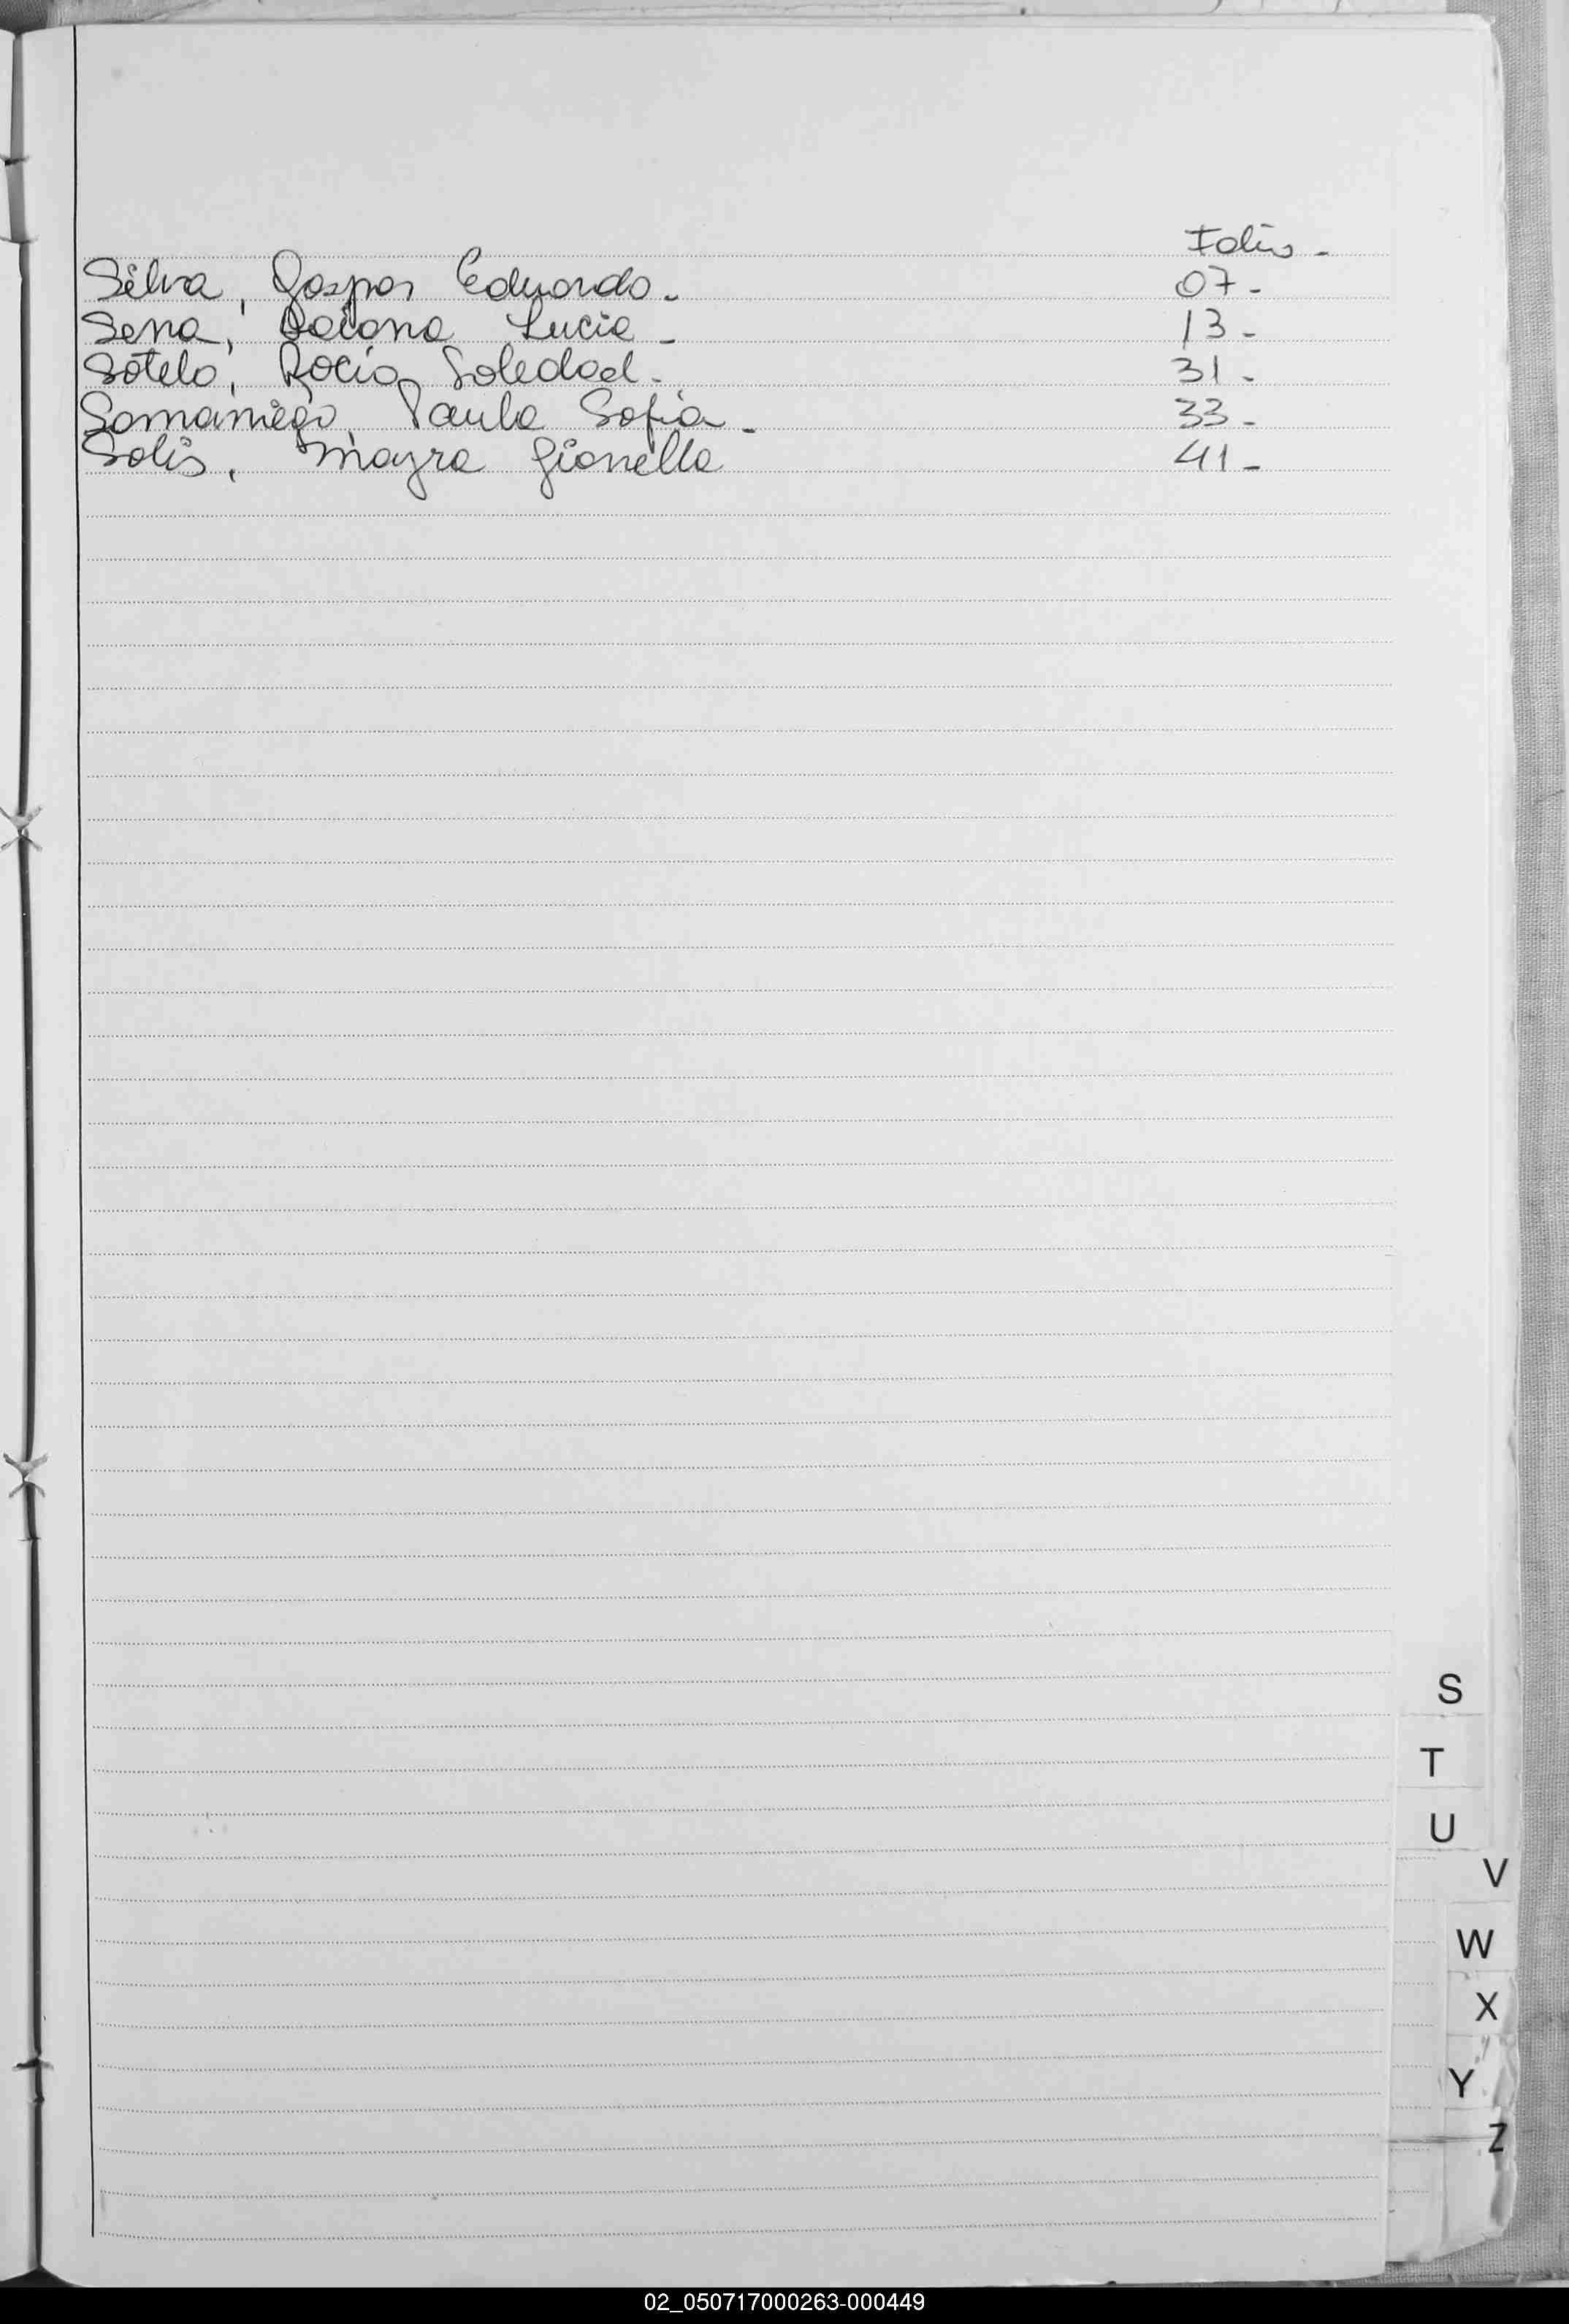 Folio -
Silva, Gaspar Eduardo - 07 -
Sena, Daiana Lucia - 13 -
Sotelo, Rocío Soledad - 31 -
Samaniego, Paula Sofia - 33 -
Solis, Mayra Gianella 41 -
S
T
U
V
W
X
Y
Z
02_050717000263-000449